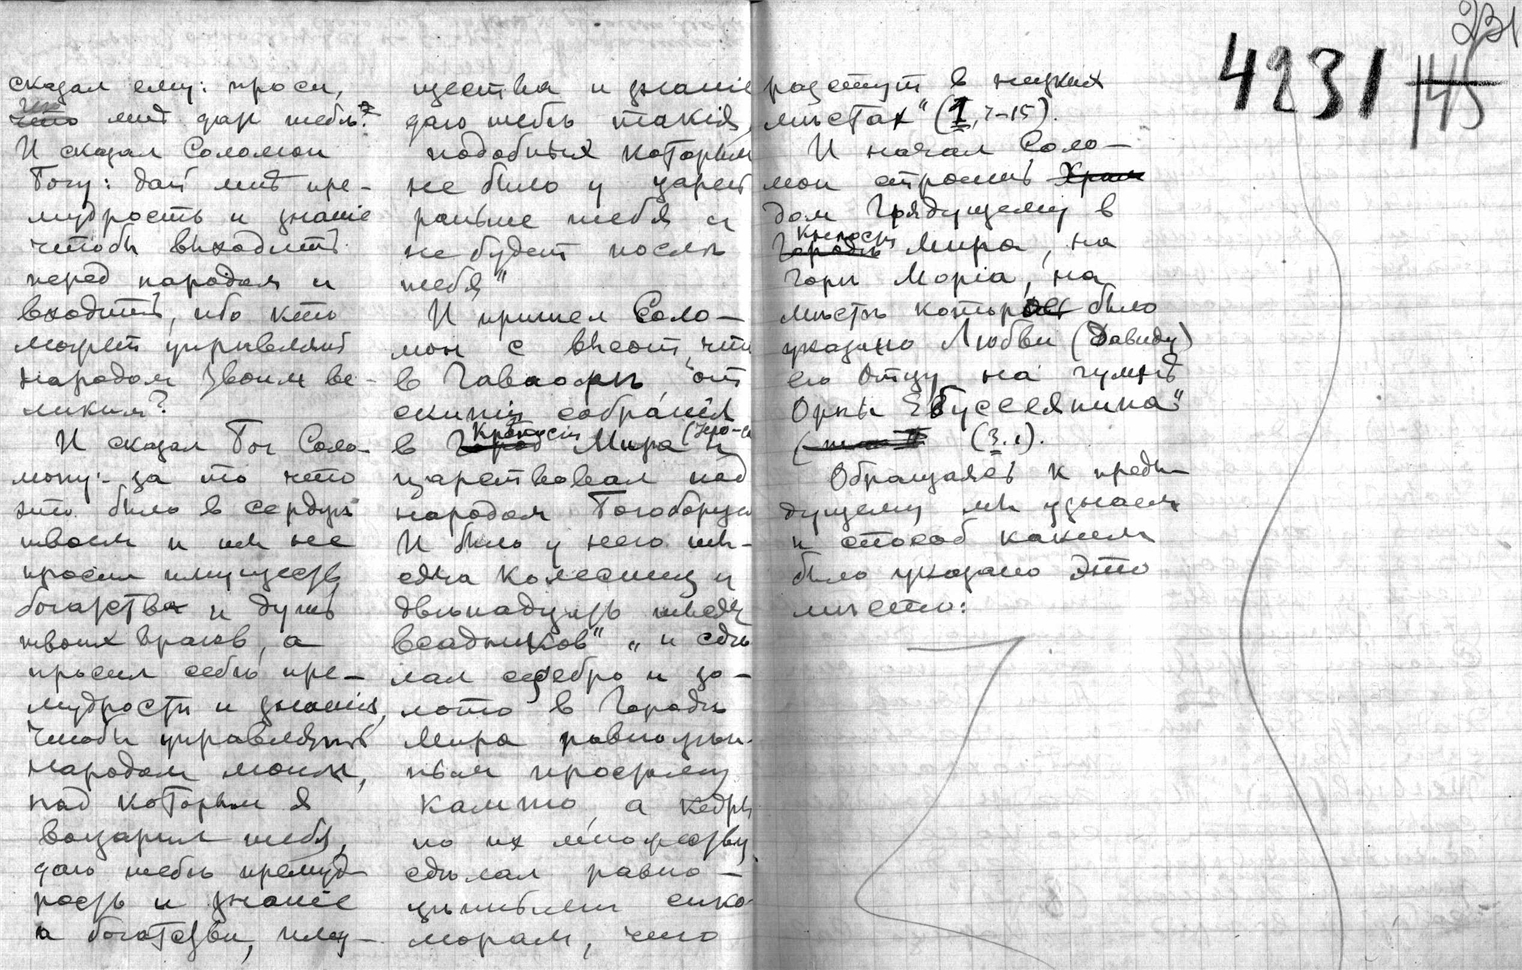 сказал ему: проси,
что мнѣ дать тебѣ?
И сказал Соломон
Богу: дай мнѣ пре-
мудрость и знаніе
чтобы выходить
перед народом и
входить, ибо кто
может управлять
народом Твоим ве-
ликим?
И сказал Бог Соло-
мону: за то что
это было в сердцѣ
твоем и ты не
просил имуществ
богатства и душ
твоих врагов, а
просил себѣ пре-
мудрости и знанія,
чтобы управлять
народом моим,
над которым я
воцарил тебя,
даю тебѣ премуд-
рость и знаніе
а богатства, иму-
щества и знаніе
даю тебѣ такія,
подобных которым
не было у царей
раньше тебя и
не будет послѣ
тебя"
И пришел Соло-
мон с высот, что
в Гаваонѣ от
скиніи собранія
в Город Крѣпость Мира и
царствовал над
народом Богоборца
И было у него ты-
сяча колесниц и
двѣнадцать тысяч
всадников" „и сдѣ
лал серебро и зо-
лото в Городѣ
Мира равноцѣн-
ным простому
камню, а кедры
по их множеству
сдѣлал равно-
цѣнными сико-
морам, что
4231
231
145
растут в низких
мѣстах" (1, 7-15).
И начал Соло-
мон строить Храм
дом Грядущему в
Городѣ Крѣпости Мира, на
горѣ Моріа, на
мѣстѣ которое было
указано Любви (Давиду)
его Отцу на гумнѣ
Орны Евуссеянина"
(3.1).
Обращаясь к преды-
дущему мы узнаем
и способ каким
было указано это
мѣсто: